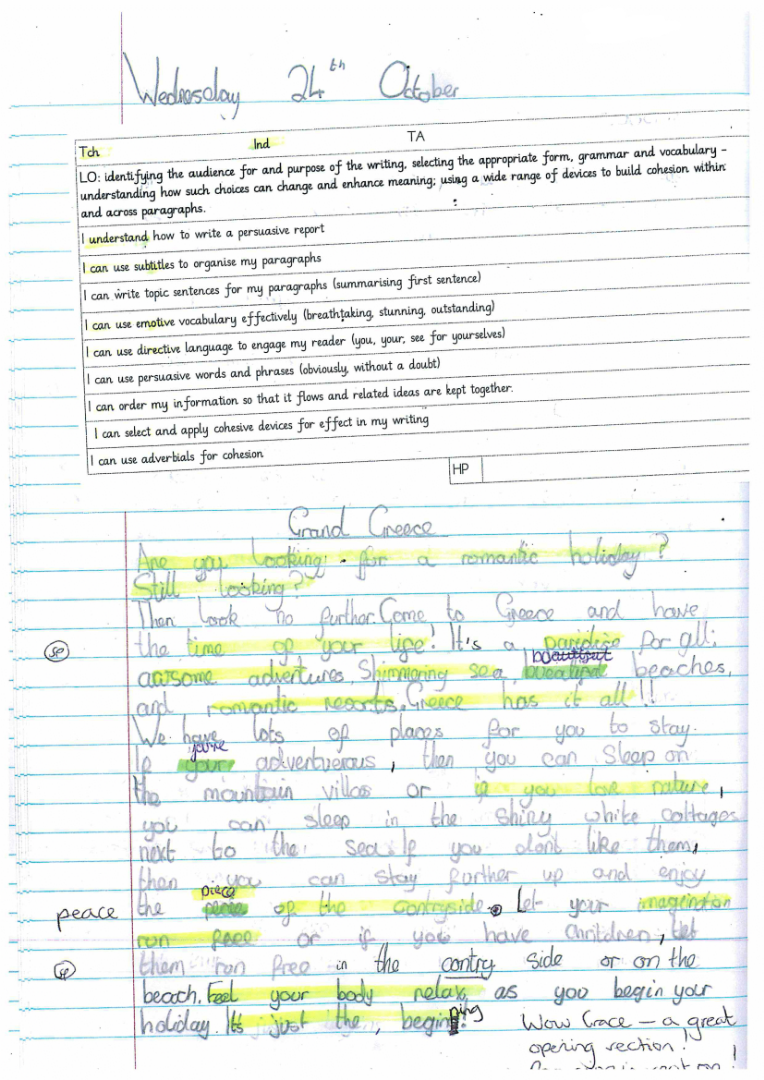 Wednesday 24th October
Tch Ind TA
LO: identifying the audience for and purpose of the writing, selecting the appropriate form, grammar and vocabulary –
understanding how such choices can change and enhance meaning; using a wide range of devices to build cohesion within
and across paragraphs.
I understand how to write a persuasive report
I can use subtitles to organise my paragraphs
I can write topic sentences for my paragraphs (summarising first sentence)
I can use emotive vocabulary effectively (breathtaking, stunning, outstanding)
I can use directive language to engage my reader (you, your, see for yourselves)
I can use persuasive words and phrases (obviously, without a doubt)
I can order my information so that it flows and related ideas are kept together.
I can select and apply cohesive devices for effect in my writing
I can use adverbials for cohesion
HP
Grand Greece
Are you looking for a romantic holiday?
Still looking?
Then look no further. Come to Greece and have
the time of your life! It's a paridise for all;
sp
beautiful
awsome adventures, Shimmering sea, beaches,
and romantic resorts. Greece has it all!!
We have lots of places for you to stay.
you're
If your adventuerous, then you can sleep on
the mountain villas or if you love nature,
you can sleep in the shiny white cottages
next to the sea. If you don't like them,
then you can stay further up and enjoy
piece
peace the of the contryside. Let your imagination
run free or if you have chrildren, let
sp them run free in the contry side or on the
beach. Feel your body relax as you begin your
holiday. It's just the, beginning!
Wow Grace – a great
opening section!